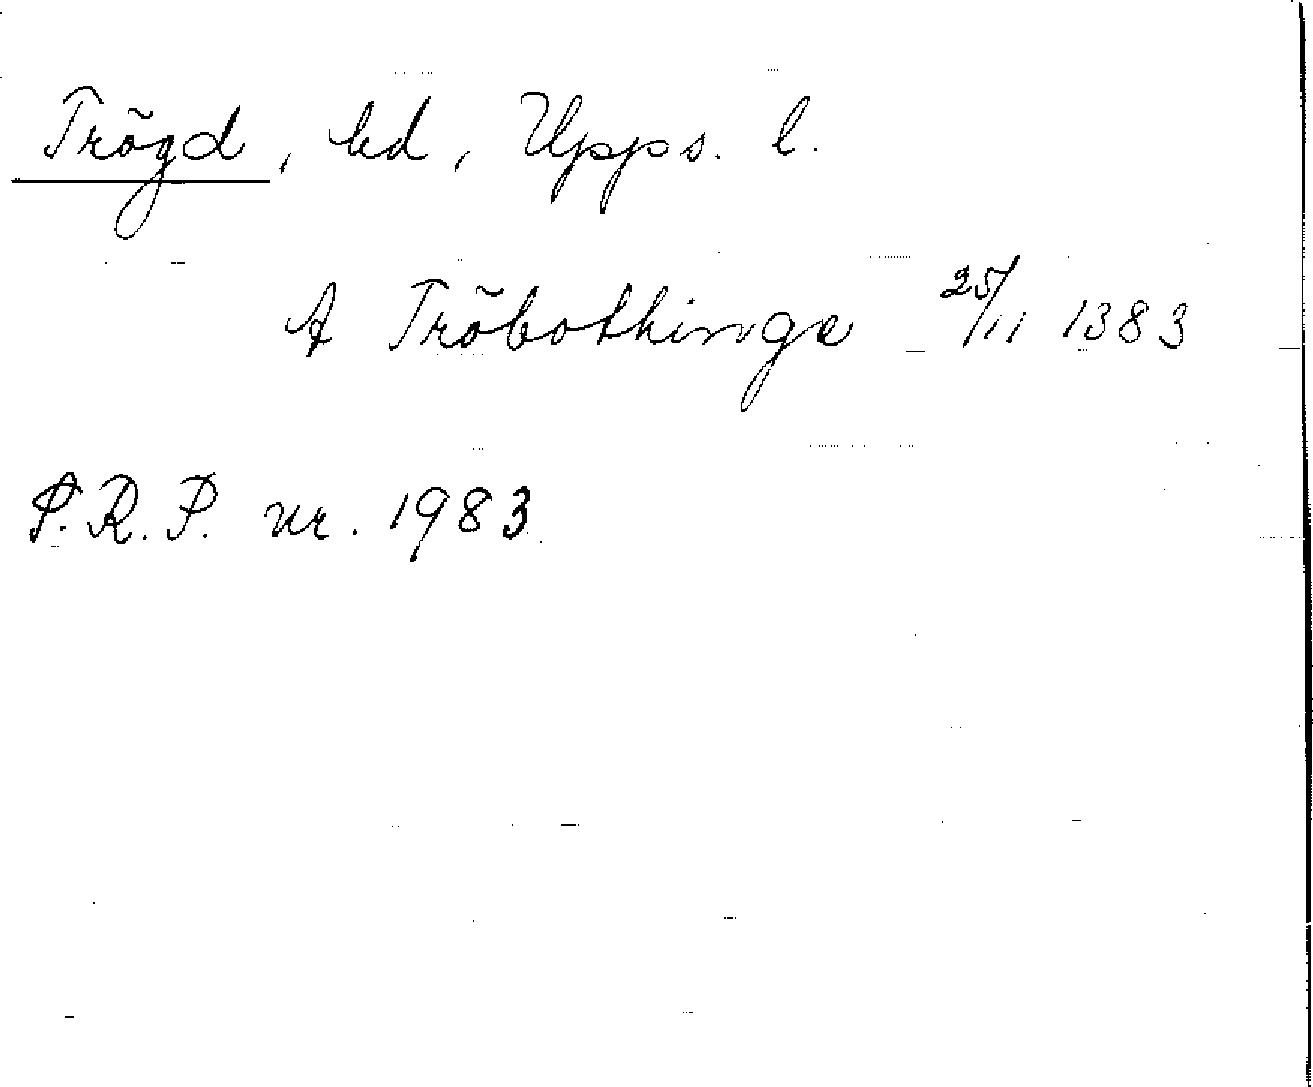 Trögd, hd, Upps. l.
A Tröbothinge 25/11 1383
S.R.P. nr. 1983